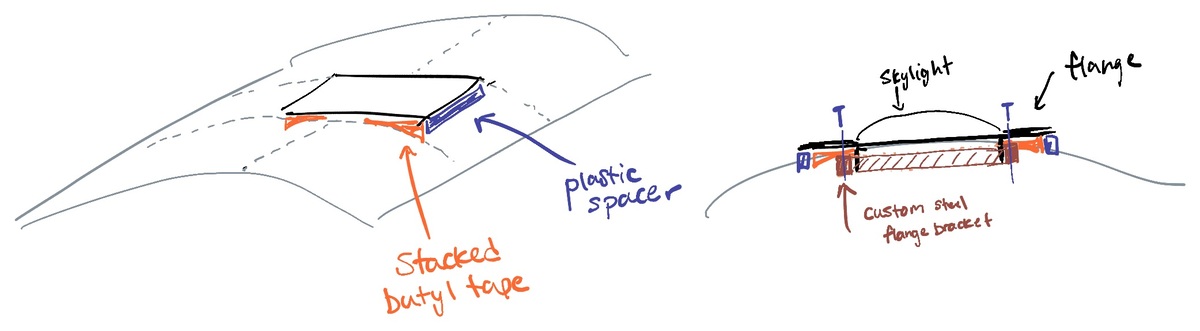 plastic
spacer
Stacked
butyl tape
skylight
flange
T
T
custom steel
flange bracket